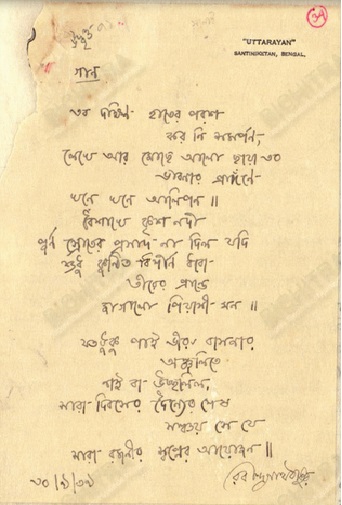 "UTTARAYAN"
SANTINIKETAN, BENGAL.
গান
তব দক্ষিণ হাতের পরশ
কর নি সমর্পণ,
লেখে আর মোছে আলো ছায়া তব
ভাবনার প্রাঙ্গণে
খনে খনে আলিপন ॥
বৈশাখে কৃশ নদী
পূর্ণ স্রোতের প্রসাদ না দিল যদি
শুধু কুণ্ঠিত বিশীর্ণ ধারা
তীরের প্রান্তে
জাগালো পিয়াসী মন ॥
যতটুকু পাই ভীরু বাসনার
অঞ্জলিতে
নাই বা উচ্ছলিল,
সারা দিবসের দৈন্যের শেষে
সঞ্চয় সে যে
সারা রজনীর স্বপ্নের আয়োজন ॥
রবীন্দ্রনাথ ঠাকুর